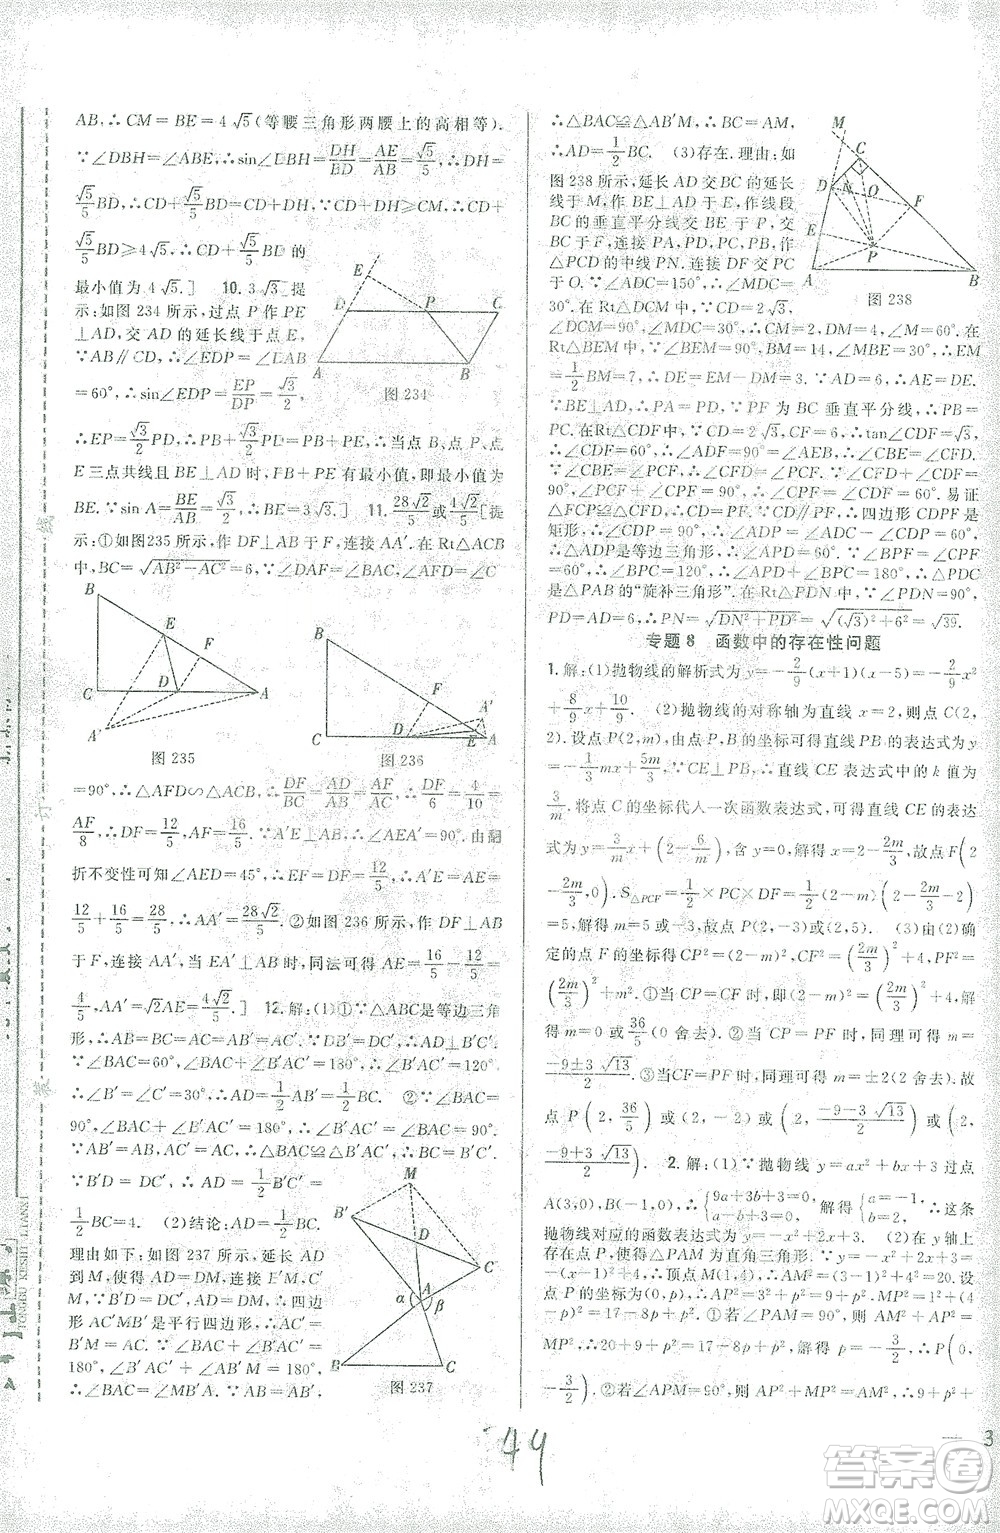 AB,∴CM=BE=4√5(等腰三角形两腰上的高相等).
∵∠DBH=∠ABE,∴sin∠DBH=DH/BD=AE/AB=√5/5,∴DH=
√5/5BD,∴CD+√5/5BD=CD+DH,∴CD+DH≥CM,∴CD+
√5/5BD≥4√5,∴CD+√5/5BD的
最小值为4√5] 10.3√3[提
示:如图234,过点P作PE
⊥AD,交AD的延长线于点E,
∵AB∥CD,∴∠EDP=∠DAB
=60°,∴sin∠EDP=EP/DP=√3/2,
E D P C A B
图234
∴EP=√3/2PD,∴PB+√3/2PD=PB+PE,∴当点B、点P、点
E三点共线且BE⊥AD时,PB+PE有最小值,即最小值为
BE.∵sin A=BE/AB=√3/2,∴BE=3√3] 11.28√2/5或4√2/5[提
示:①如图235所示,作DF⊥AB于F,连接AA′.在Rt△ACB
中,BC=√(AB²−AC²)=6,∵∠DAF=∠BAC,∠AFD=∠C
B E F C D A A′
图235
B F A′ C D E A
图236
=90°,∴△AFD∽△ACB,∴DF/BC=AD/AB=AF/AC,∴DF/6=4/10=
AF/8,∴DF=12/5,AF=16/5.∵A′E⊥AB,∴∠AEA′=90°.由翻
折不变性可知∠AED=45°,∴EF=DF=12/5,∴AE=A′E=
12/5+16/5=28/5,∴AA′=28√2/5.②如图236所示,作DF⊥AB
于F,连接AA′,当EA′⊥AB时,同法可得AE=16/5−12/5=
4/5,AA′=√2AE=4√2/5.] 12.解:(1)①∵△ABC是等边三角
形,∴AB=BC=AC=AB′=AC′.∵DB′=DC′,∴AD⊥B′C′.
∵∠BAC=60°,∠BAC+∠B′AC′=180°,∴∠B′AC′=120°,
∴∠B′=∠C′=30°,∴AD=1/2AB′=1/2BC.②∵∠BAC=
90°,∠BAC+∠B′AC′=180°,∴∠B′AC′=∠BAC=90°.
∵AB=AB′,AC=AC′,∴△BAC≌△B′AC′,∴BC=B′C′.
∵B′D=DC′,∴AD=1/2B′C′=
1/2BC=4. (2)结论:AD=1/2BC.
理由如下:如图237所示,延长AD
到M,使得AD=DM,连接B′M,
C′M,∵B′D=DC′,AD=DM,∴四边
形AC′MB′是平行四边形,∴AC′=
B′M=AC.∵∠BAC+∠B′AC′=
180°,∠B′AC′+∠AB′M=180°,
∴∠BAC=∠MB′A.∵AB=AB′,
M B′ D C′ α A β B C
图237
∴△BAC≌△AB′M,∴BC=AM,
∴AD=1/2BC. (3)存在.理由:如
图238所示,延长AD交BC的延长
线于M,作BE⊥AD于E,作线段
BC的垂直平分线交BE于P,交
BC于F,连接PA,PD,PC,作
△PCD的中线PN.连接DF交PC
于O.∵∠ADC=150°,∴∠MDC=
30°.在Rt△DCM中,∵CD=2√3,∠DCM
=90°,∠MDC=30°,∴CM=2,DM=4,∠M=60°.在
Rt△BEM中,∵∠BEM=90°,BM=14,∠MBE=30°,∴EM
=1/2BM=7,∴DE=EM−DM=3.∵AD=6,∴AE=DE.
∵BE⊥AD,∴PA=PD.∵PF为BC垂直平分线,∴PB=
PC.在Rt△CDF中,∵CD=2√3,CF=6,∴tan∠CDF=√3,
∴∠CDF=60°=∠CPF,
=90°,∴△FCP≌△CFD,∴CD=PF.∵CD∥PF,∴四边形CDPF是
矩形,∴∠CDP=90°,∴∠ADP=∠ADC−∠CDP=60°,
∴△ADP是等边三角形,∴∠APD=60°.∵∠BPF=∠CPF
=60°,∴∠BPC=120°,∴∠APD+∠BPC=180°,∴△PDC
是△PAB的“旋补三角形”.在Rt△PDN中,∵∠PDN=90°,
PD=AD=6,DN=√3,∴PN=√(DN²+PD²)=√((√3)²+6²)=√39.
M C D N O F E P A B
图238
专题8 函数中的存在性问题
1.解:(1)抛物线的解析式为y=−2/9(x+1)(x−5)=−2/9x²
+8/9x+10/9. (2)抛物线的对称轴为直线x=2,则点C(2,
2),设点P(2,m),由点P、B的坐标可得直线PB的表达式为y=
−1/3mx+5m/3.∵CE⊥PB,∴直线CE表达式中的k值为
3/m.将点C的坐标代入一次函数表达式,可得直线CE的表达
式为y=3/mx+(2−6/m).当y=0时,x=2−2m/3,故点F(2
−2m/3,0).S△PCF=1/2×PC×DF=1/2(2−m)(2−2m/3−2)
=5,解得m=5或−3,故点P(2,−3)或(2,5). (3)由(2)确
定的点F的坐标得:CP²=(2−m)²,CF²=(2m/3)²+4,PF²=
(2m/3)²+m².①当CP=CF时,即(2−m)²=(2m/3)²+4,解
得m=0或36/5(0舍去).②当CP=PF时,同理可得m=
(−9±3√13)/2.③当CF=PF时,同理可得m=±2(2舍去).故
点P(2,36/5)或(2,−2)或(2,(−9−3√13)/2)或(2,
(−9+3√13)/2). 2.解:(1)∵抛物线y=ax²+bx+3过点
A(3,0),B(−1,0),∴{9a+3b+3=0,a−b+3=0, 解得{a=−1,b=2, ∴这条
抛物线对应的函数表达式为y=−x²+2x+3. (2)在y轴上
存在点P,使得△PAM为直角三角形.∵y=−x²+2x+3=
−(x−1)²+4,∴顶点M(1,4),∴AM²=(3−1)²+4²=20.设
点P的坐标为(0,p),∴AP²=3²+p²=9+p²,MP²=1²+
(4−p)²=17−8p+p².①若∠PAM=90°,则AM²+AP²=
MP²,∴20+9+p²=17−8p+p²,解得p=−3/2,∴P(0,
−3/2).②若∠APM=90°,则AP²+MP²=AM²,∴9+p²+
TONGBU KESHI LIANXI
49
3
答案圈
MXQE.COM